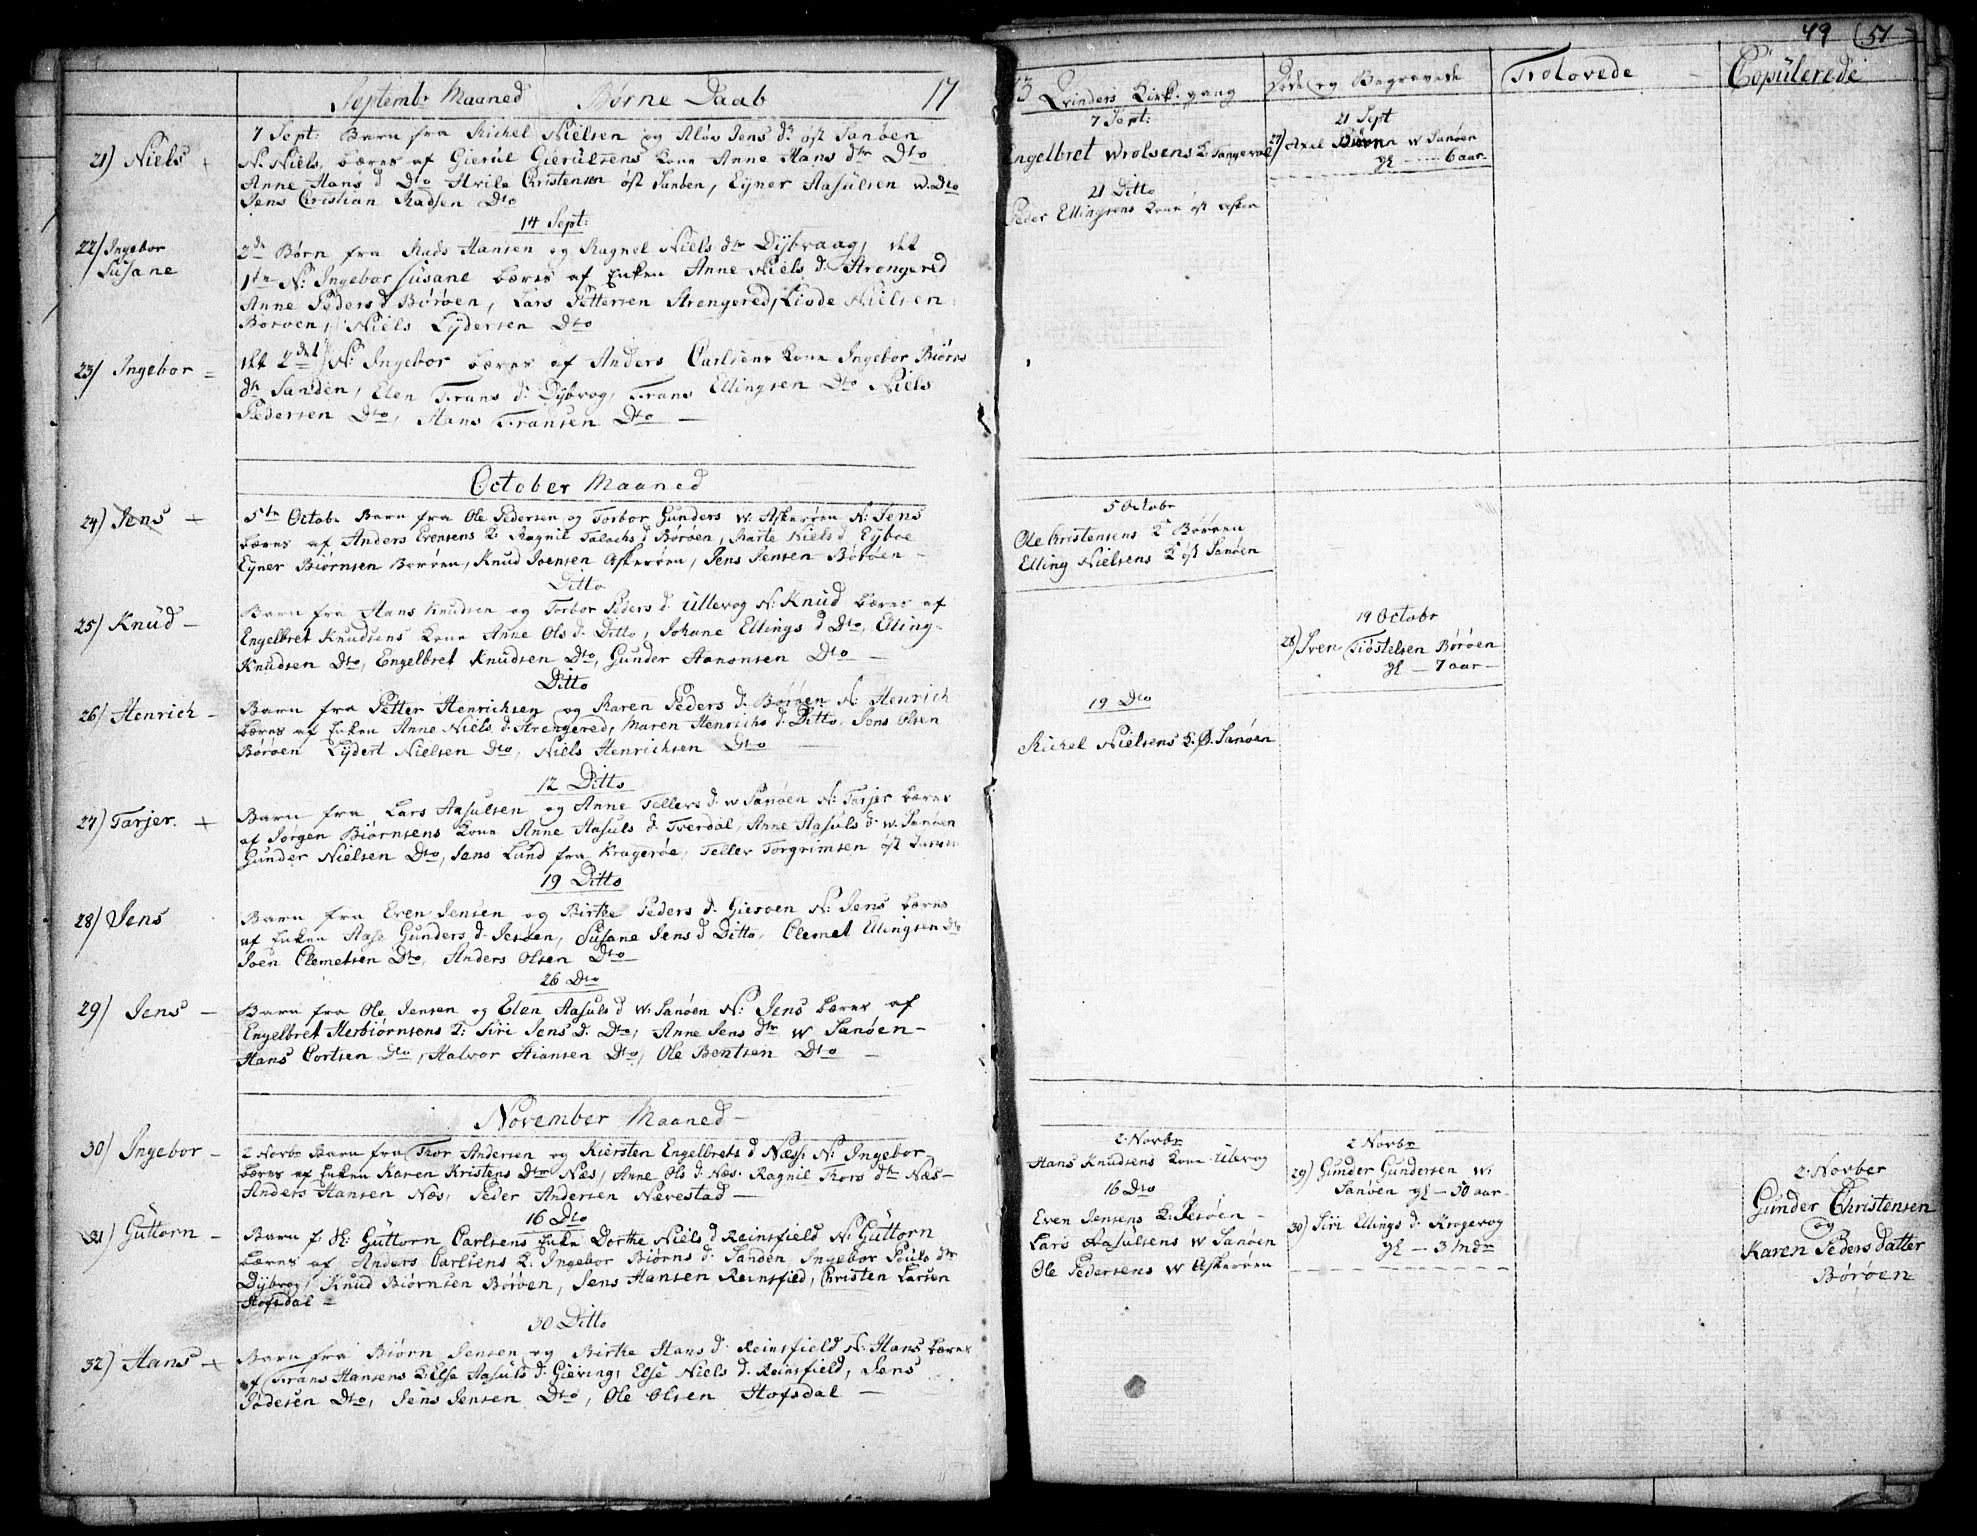 Septembr Maaned Børne Daab 17
7 Sept: Barn fra Michel Nielsen og Aløv Jens dr øst Sanøen
21) Niels +
N: Niels, bæres af Gierül Gierülsens kone Anne Hans dtr Dto
Anne Hans d Dto Christensen øst Sanøen, Eyner Aasülsen w. Dto
Jens Christian Madsen Dto
14 Sept:
22) Ingebor Süsane
2de Børn fra Mads Hansen og Magnel Niels dtr Dÿbvaag, det
1ste N: Ingebor Süsane bæres af Enken Anne Niels d. Strengered
Anne Peders d Børøen, Lars Pettersen Strengered, Liode Nielsen
Børøen, Niels Lydersen Dto
23) Ingebor =
det 2det N: Ingebor bæres af Anders Carlsens kone Ingebor Biørns
dtr Sandøen, Elen Frans d: Dÿbvog, Frans Ellingsen Dto Niels
Pedersen Dto, Hans Fransen Dto —
October Maaned
24) Jens +
5te Octobr Barn fra Ole Pedersen og Torbor Gunders w. Askerøen N: Jens
bæres af Anders Evensens K: Magnil Talachs d Børøen, Marte Niels d Eÿboe
Eyner Biørnsen Børøen, Knud Joensen Askerøen, Jens Jensen Børøen —
Ditto
25) Knüd —
Barn fra Hans Knudsen og Torbor Peders d. Ullevog N: Knüd bæres af
Engelbret Knudsens Kone Anne Ols d. Ditto, Johane Ellings d Dto, Elling
Knudsen Dto, Engelbret Knudsen Dto, Gunder Aanonsen Dto —
Ditto
26) Henrich —
Barn fra Petter Henrichsen og Maren Peders d. Børøen N: Henrich
bæres af Enken Anne Niels d. Strengered, Maren Henrichs d. Ditto, Jens Olsen
Børøen Lÿdert Nielsen Dto, Niels Henrichsen Dto —
12 Ditto
27) Tarjer. +
Barn fra Lars Aasulsen og Anne Tellers d. w Sanøen N: Tarjer bæres
af Jørgen Biørnsens Kone Anne Aasuls d. Tverdal, Anne Aasüls d. w. Sanøen
Gunder Nielsen Dto, Jens Lund fra Kragerøe, Teller Torgrimsen øst Sanøen
19 Ditto
28) Jens
Barn fra Even Jensen og Birthe Peders d. Giesøen N: Jens bæres
af Enken Aase Gunders d. Jesøen, Süsane Jens d Ditto, Clemet Ellingsen Dto
Joen Clemetsen Dto, Anders Olsen Dto
26 Dto
29) Jens —
Barn fra Ole Jensen og Elen Aasuls d w. Sanøen N: Jens bæres af
Engelbret Herbiørnsens K: Siri Jens d. Dto, Anne Jens dtr w Sanøen —
Hans Cortsen Dto, Halvor Stiansen Dto, Ole Bentsen Dto —
November Maaned —
30) Ingebor —
2 Novbr Barn fra Thor Andersen og Kiersten Engelbrets d Næss N: Ingebor
bæres af Enken Karen Kristens Dtr Næs, Anne Ols d. Næs. Ragnil Thors dtr Næs —
Anders Hansen Næs, Peder Andersen Nærestad —
16 Dto
31) Güttorn —
Barn f. Güttorn Carlsens Enke Dorthe Niels d Reinsfield N: Güttorn
bæres af Anders Carlsens K. Ingebor Biørns d. Sandøn, Ingebor Pouls dtr
Dÿbvog, Knud Biørnsen Børøen, Jens Hansen Reinsfied, Christen Larsen
Hofsdal —
30 Ditto
32) Hans +
Barn fra Biørn Jensen og Birthe Hans d. Reinsfield N: Hans bæres
af Frans Hansens K: Else Aasuls d. Gieving, Else Niels d. Reinsfield, Jens
Padesen Dto, Jens Jensen Dto, Ole Olsen Hofsdal —
49 51
73 Qvinders Kirk: gang
7 Sept:
Engelbret Wrolsens K: Tangevol
21 Ditto
Peder Ellingsens Kone øst Asker
5 Octobr
Ole Christensens K Børøen
Elling Nielsens K øst Sanøen
19 Dto
Michel Nielsens K. Ø. Sanøen
2 Novbr
Hans Knudsens Kone Ullevog
16 Dto
Even Jensens K: Jesøen —
Lars Aasulsens W Sanøen
Ole Pedersens W Askerøen
Døde og Begravede
21 Sept
27) Axel Biørn W Sanøen
gl — 6 aar
19 Octobr
28) Sven Tiøstelsen Børøen
gl — 7 aar —
2 Novbr
29) Gunder Gundersen W:
Sanøen gl — 50 aar —
30) Siri Ellings d. Krogevog
gl — 3 Mdr
Trolovede —
Copülerede
2 Novber
Gunder Christensen
og
Karen Peders datter
Børøen